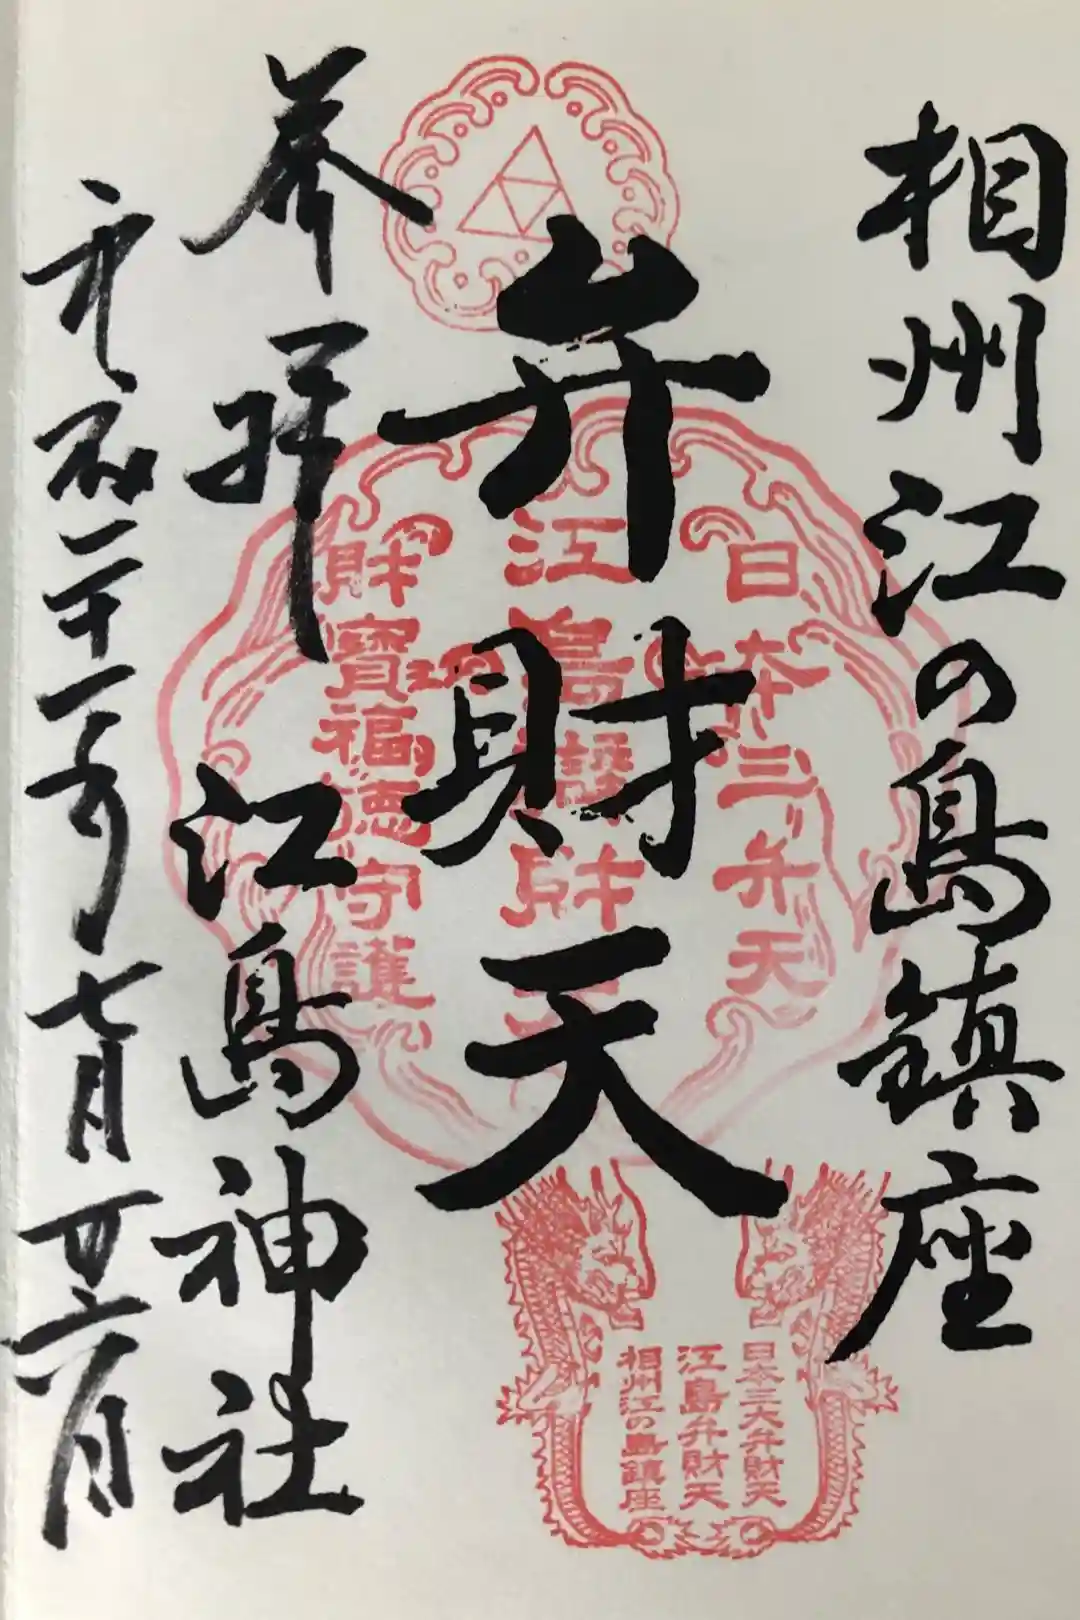 相州江の島鎮座
弁財天
奉拝 江島神社
平成二十 年七月
日本三弁天
江島 財天
財寶福徳守護
日本三大弁財天
江島弁財天
相州江の島鎮座